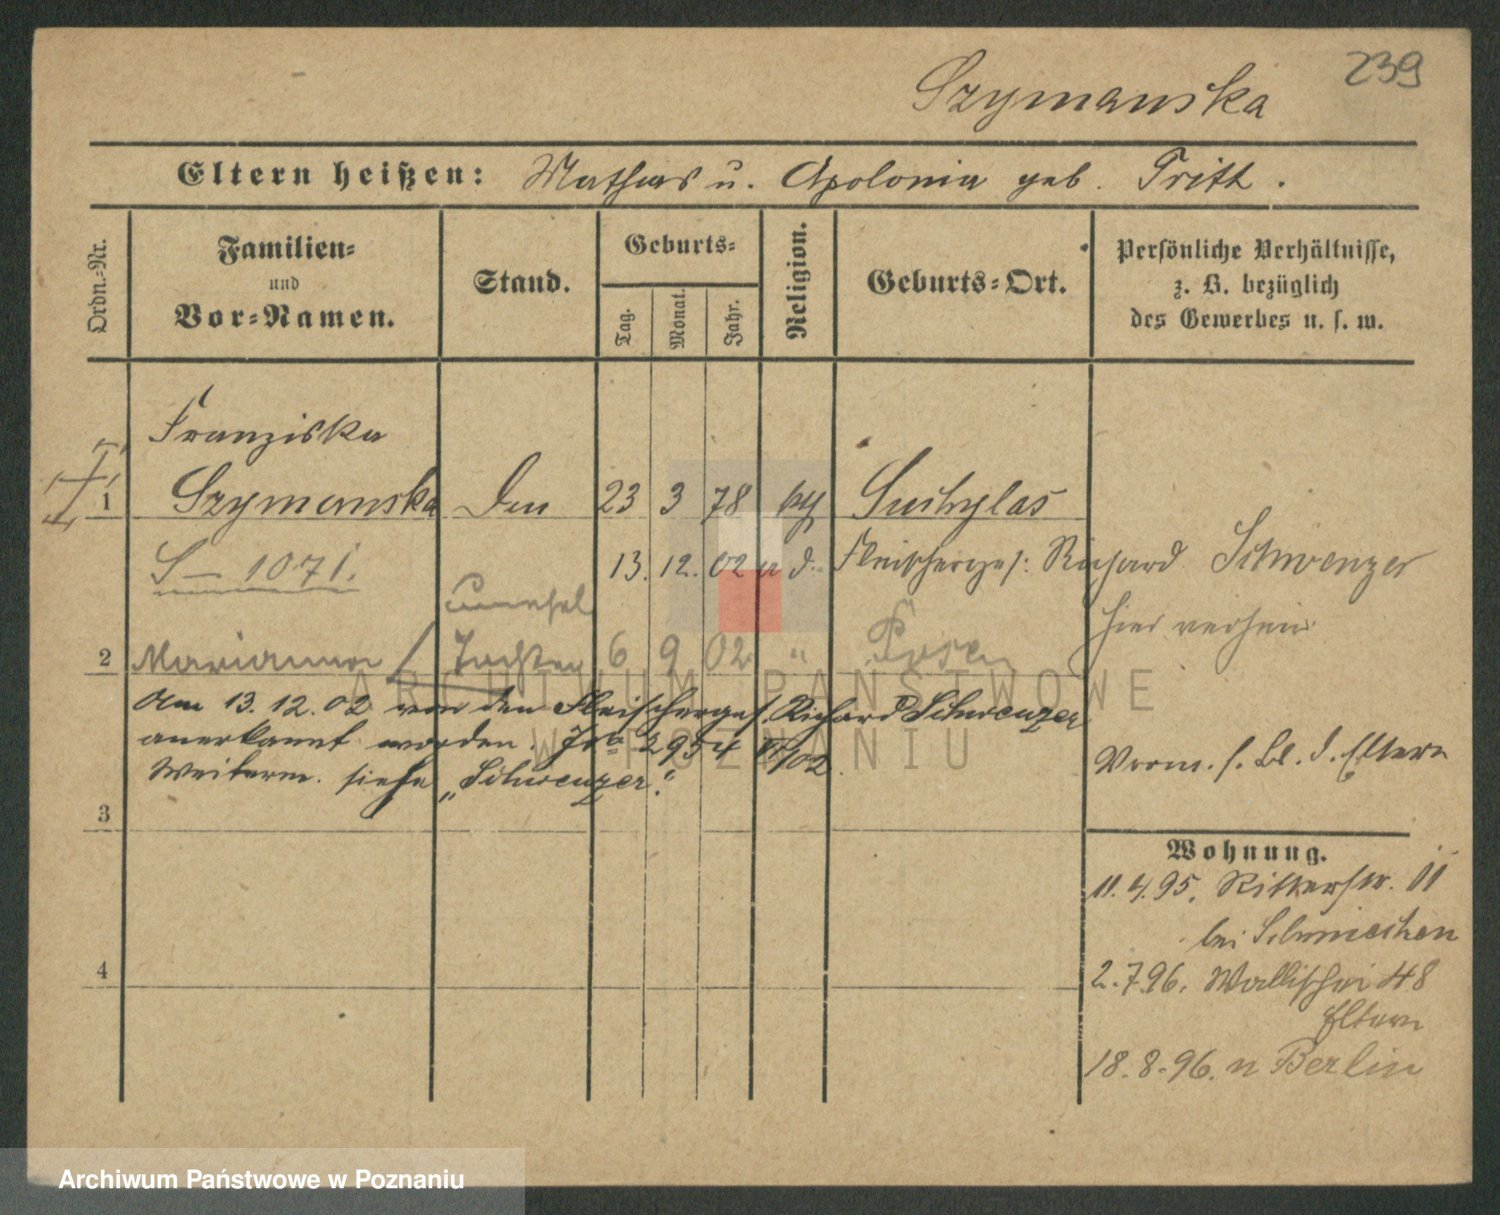 239
Szymanska
Eltern heißen: Mathias u. Apolonia geb. Tritt.
Ordn.-Nr.
Familien-
und
Vor-Namen.
Stand.
Geburts-
Tag.
Monat.
Jahr.
Religion.
Geburts-Ort.
Persönliche Verhältnisse,
z. B. bezüglich
des Gewerbes u. s. w.
Franziska
1 Szymanska 23 3 78 Suchylas
S—1071.
13. 12. 02 a d. Fleischerges: Richard Schwenzer
hier verheir.
unehel
2 Marianna Tochter 6 9 02 " Posen
Am 13.12.02 von den Fleischerges. Richard Schwenzer
anerkannt worden. 2954 /02.
Weiterm. siehe „Schwenzer."
Vorm. s. Bl. d. Eltern
3
Wohnung.
11.4.95. Ritterstr. 11
bei Schmiechen
2.7.96. Wallischei 48
Eltern
4
18.8.96. n Berlin
ARCHIWUM PAŃSTWOWE
W POZNANIU
Archiwum Państwowe w Poznaniu